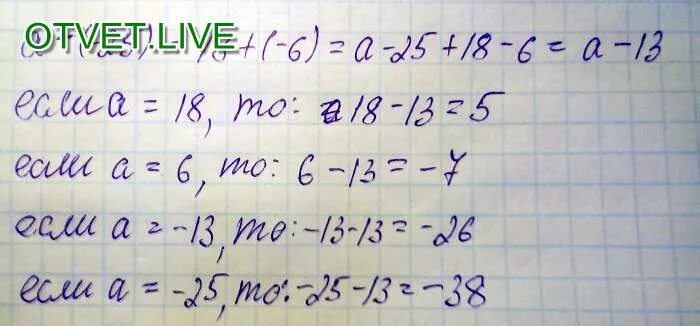 OTVET.LIVE
+(-6) = a-25+18-6 = a-13
если a = 18, то: 18-13=5
если a = 6, то: 6-13=-7
если a = -13, то: -13-13=-26
если a = -25, то: -25-13=-38